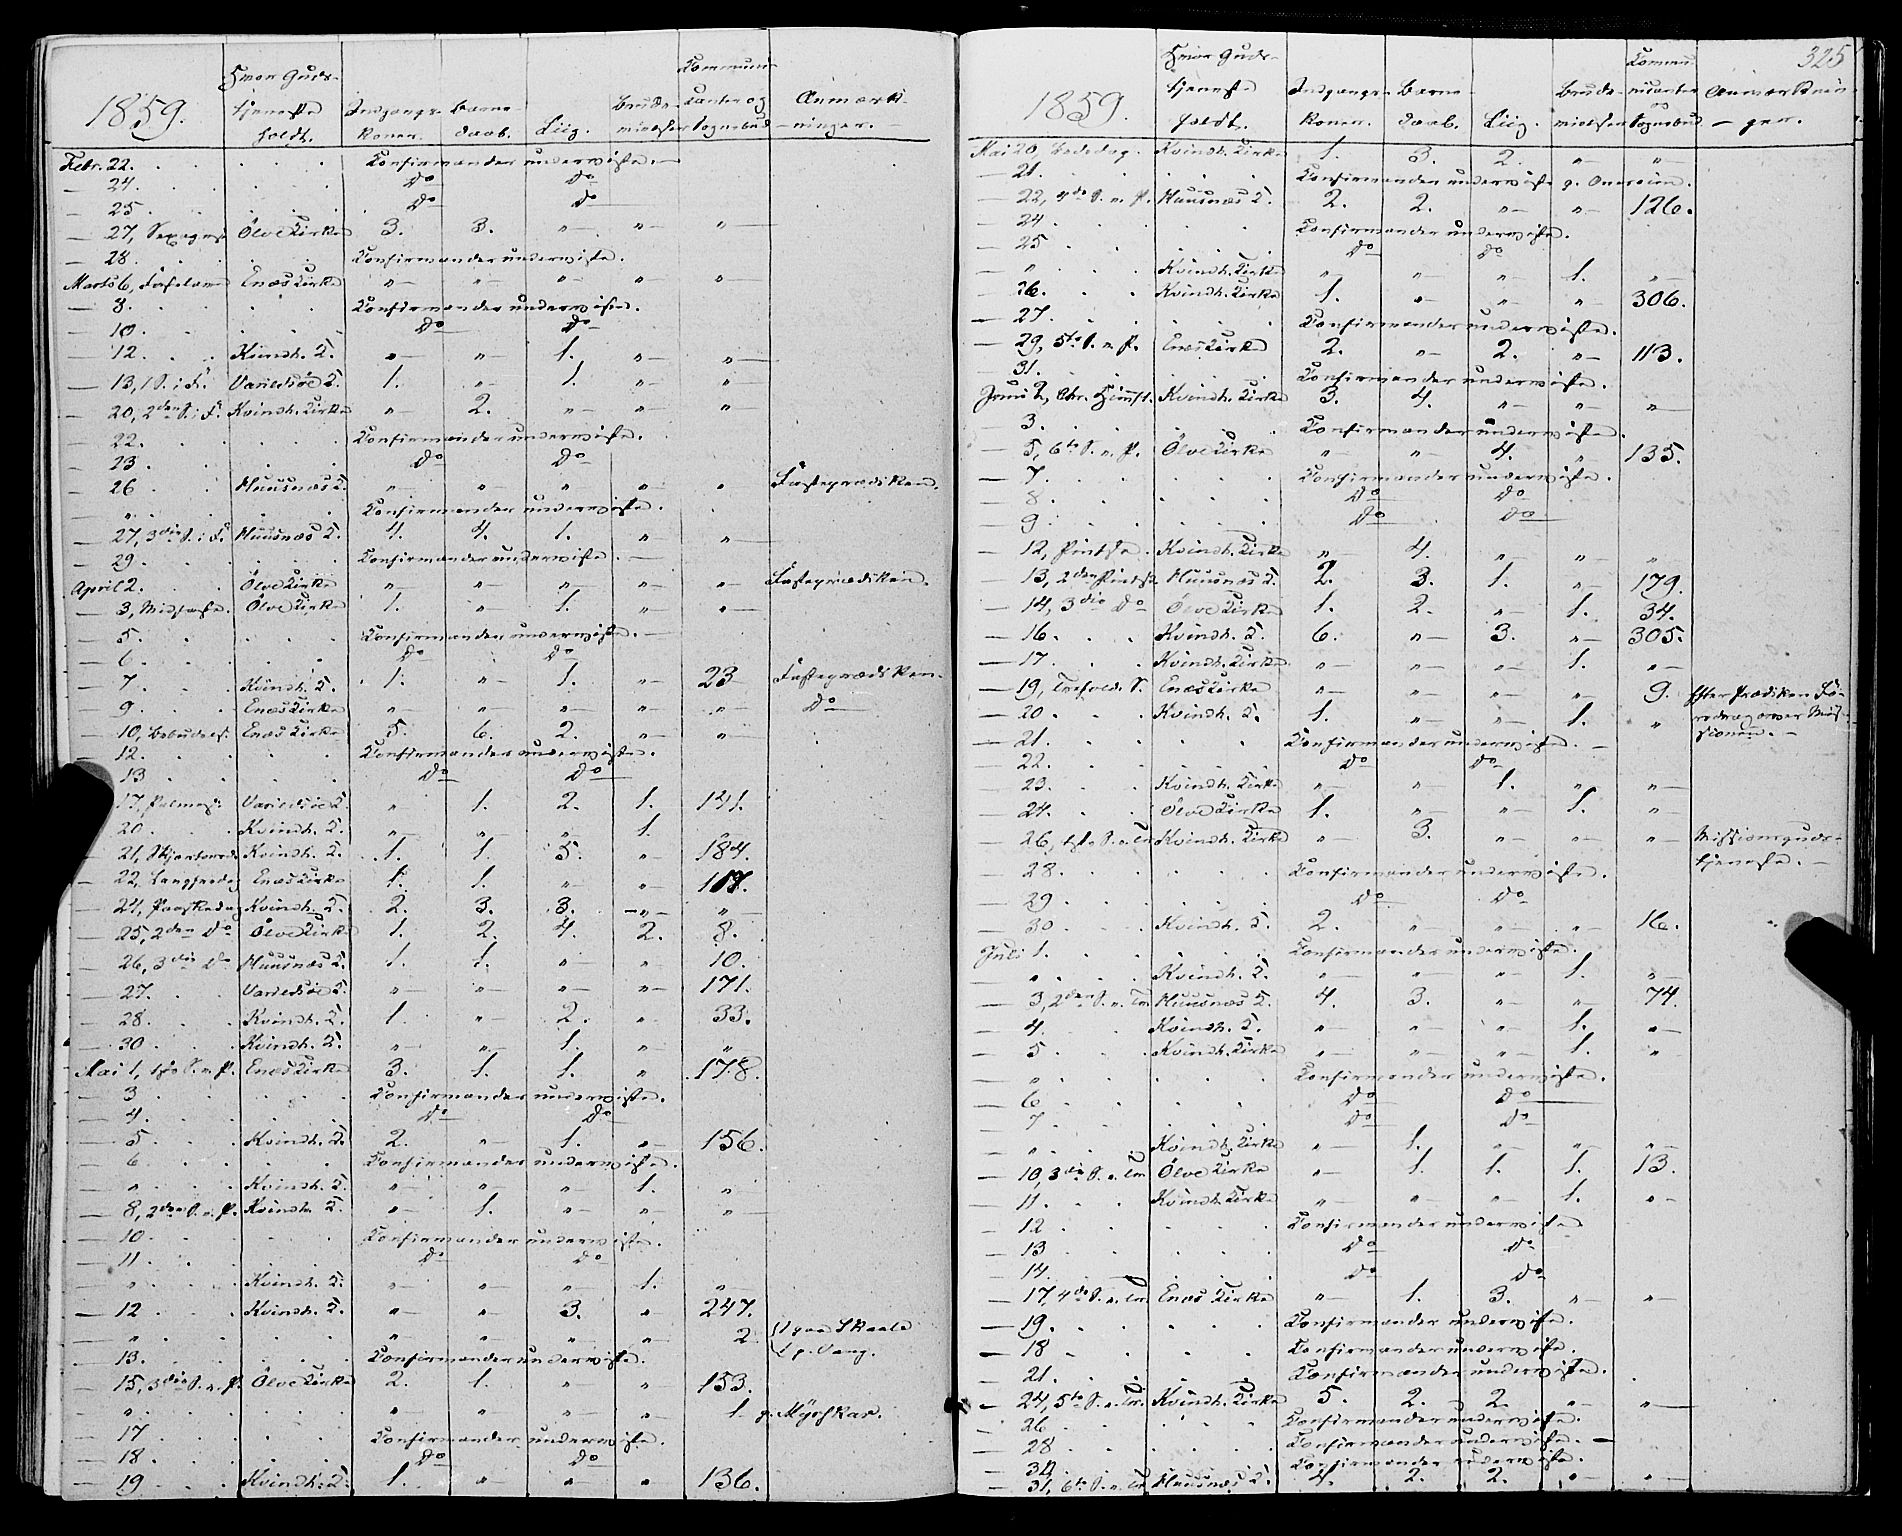 1859. Hvor Gudstjeneste holdt. Indgangskoner. Barnedaab. Liig. Brudevielser Communicanter og Sognebud Anmærkninger.
Febr. 22. Confirmander underviste.
— 24. Do Do
— 25. Do Do
— 27, Sexages. Ölve Kirke 3. 3. „ „ „
— 28. Confirmander underviste.
Marts 6, Fastelavn Enæs Kirke „ „ „ „ „
— 8. Confirmander underviste.
— 10. Do Do
— 12. Kvindh. K. „ „ 1. „ „
— 13, 1 S. i F. Varildsöe K. 1. „ 1. „ „
— 20, 2den S. i F. Kvindh. Kirke „ 2. „ „ „
— 22. Confirmander underviste.
— 23. Do Do
— 26 Huusnæs K. „ „ „ „ „ Fasteprædiken.
„ Confirmander underviste.
— 27, 3die S. i F. Huusnæs K. 4. 4. 1. „ „
— 29. Confirmander underviste.
April 2. Ölve Kirke „ „ „ „ „ Fasteprædiken.
— 3, Midfaste. Ölve Kirke 1. „ 1. „ „
— 5. Confirmander underviste.
— 6. Do Do
— 7. Kvindh. K. 1. „ 1. „ 23 Fasteprædiken.
— 9. Enæs Kirke „ „ „ „ „ Do
— 10, Bebudels. Enæs Kirke 5. 6. 2. „ „
— 12. Confirmander underviste.
— 13 Do Do
17, Palmes. Varildsöe K. „ 1. 2. 1. 141.
20. Kvindh. K. „ „ „ 1. „
— 21, Skjærtorsd. Kvindh. K. 1. 1. 5. „ 184.
— 22, Langfredag Enæs Kirke 1. 1. „ „
— 24, Paaskedag Kvindh. K. 2. 3. 3. „ „
— 25, 2den Do Ölve Kirke 1. 2. 4. 2. 8.
— 26, 3die Do Huusnæs K. 1. 1. „ „ 10.
— 27. Varildsöe K. „ „ „ „ 171.
— 28. Kvindh. K. 1. „ 2. „ 33.
— 30. Kvindh. K. „ „ 1. „ „
Mai 1, 1ste S. e. P. Enæs Kirke 3. 1. 1. „ 178.
— 3 Confirmander underviste.
— 4. Do Do
— 5. Kvindh. K. 2. „ 1. „ 156.
— 6 Confirmander underviste.
— „ Kvindh. K. „ „ „ 1. „
— 8, 2den S. e. P. Kvindh. K. „ 1. „ „ „
— 10. Confirmander underviste.
— 11. Do Do
— „ Kvindh. K. „ „ „ 1. „
— 12 Kvindh. K. „ „ 3. „ 247.
— „ „ „ „ „ 2. 1 paa Skaale 1 p. Vang.
— 13. Confirmander underviste.
— 15, 3die S. e. P. Ölve Kirke 2. 1. „ „ 153.
— „ „ „ „ „ 1. p. Mÿrskar.
— 17 Confirmander underviste.
— 18 Do Do
— 19 Kvindh. K. 1. „ „ „ 136.
325
1859. Hvor Gudstjeneste holdt. Indgangskoner. Barnedaab. Liig. Brudevielser Communicanter og Sognebud Anmærkninger.
Mai 20, Bededag. Kvindh. Kirke 1. 3. 2. „ „
— 21. Confirmander underviste p.
— 22, 4de S. e. P. Huusnæs K. 2. 2. „ „ 126.
— 24. Confirmander underviste.
— 25 Do Do
— „ Kvindh. Kirke „ „ „ 1. „
— 26. Kvindh. Kirke 1. „ „ „ 306.
— 27. Confirmander underviste.
— 29, 5te S. e. P. Enæs Kirke 2. „ 2. „ 113.
— 31. Confirmander underviste.
Juni 2, Chr. Himf. Kvindh. Kirke 3. 4. „ „ „
— 3. Confirmander underviste.
— 5, 6te S. e. P. Ölve Kirke „ „ 4. „ 135.
— 7. Confirmander underviste.
— 8. Do Do
— 9. Do Do
— 12, Pintse. Kvindh. Kirke „ 4. „ „ „
— 13, 2den Pintse Huusnæs K. 2. 3. 1. „ 179.
— 14, 3die Do Ölve Kirke 1. 2. „ 1. 34.
— 16. Kvindh. K. 6. „ 3. „ 305.
— 17. Kvindh. Kirke „ „ „ 1. „
— 19, Trefold. S. Enæs Kirke „ „ „ „ 9. Efter Prædiken Foredrag over Missionen.
— 20. Kvindh. K. 1. „ „ 1. „
— 21. Confirmander underviste.
— 22. Do Do
— 23. Kvindh. Kirke „ „ 1. „ „
— 24. Ölve Kirke 1. „ „ 1. „
— 26, 1ste S. e. Tr. Kvindh. Kirke „ 3. „ „ „ Missionsgudstjeneste.
— 28. Confirmander underviste.
— 29 Do Do
— 30 Kvindh. K. 2. „ „ „ 16.
Juli 1. Confirmander underviste.
— „ Kvindh. K. „ „ „ 1. „
— 3, 2den S. e. Tr. Huusnæs K. 4. 3. „ „ 74.
— 4. Kvindh. K. „ „ „ 1. „
— 5 Kvindh. Kirke „ „ „ 1. „
— „ Confirmander underviste.
— 6 Do Do
— 7. Do Do
— „ Kvindh. Kirke „ 1. „ „ „
— 10, 3die S. e. Tr. Ölve Kirke „ 1. 1. 1. 13.
— 11. Kvindh. Kirke „ „ „ 1. „
— 12 Confirmander underviste
— 13 Do Do
— 14. Do Do
— 17, 4de S. e. Tr. Enæs Kirke „ 1. 3. „ „
— 19. Confirmander underviste.
— 18 Confirmander underviste.
— 21. Confirmander underviste.
— 24, 5te S. e. Tr. Kvindh. Kirke 5. 2. 2. „ „
— 26 Confirmander underviste.
— 28 Confirmander underviste.
— Confirmander underviste.
— 31, 6te S. e. Tr. Huusnæs K. 4. 2. 2. „ „